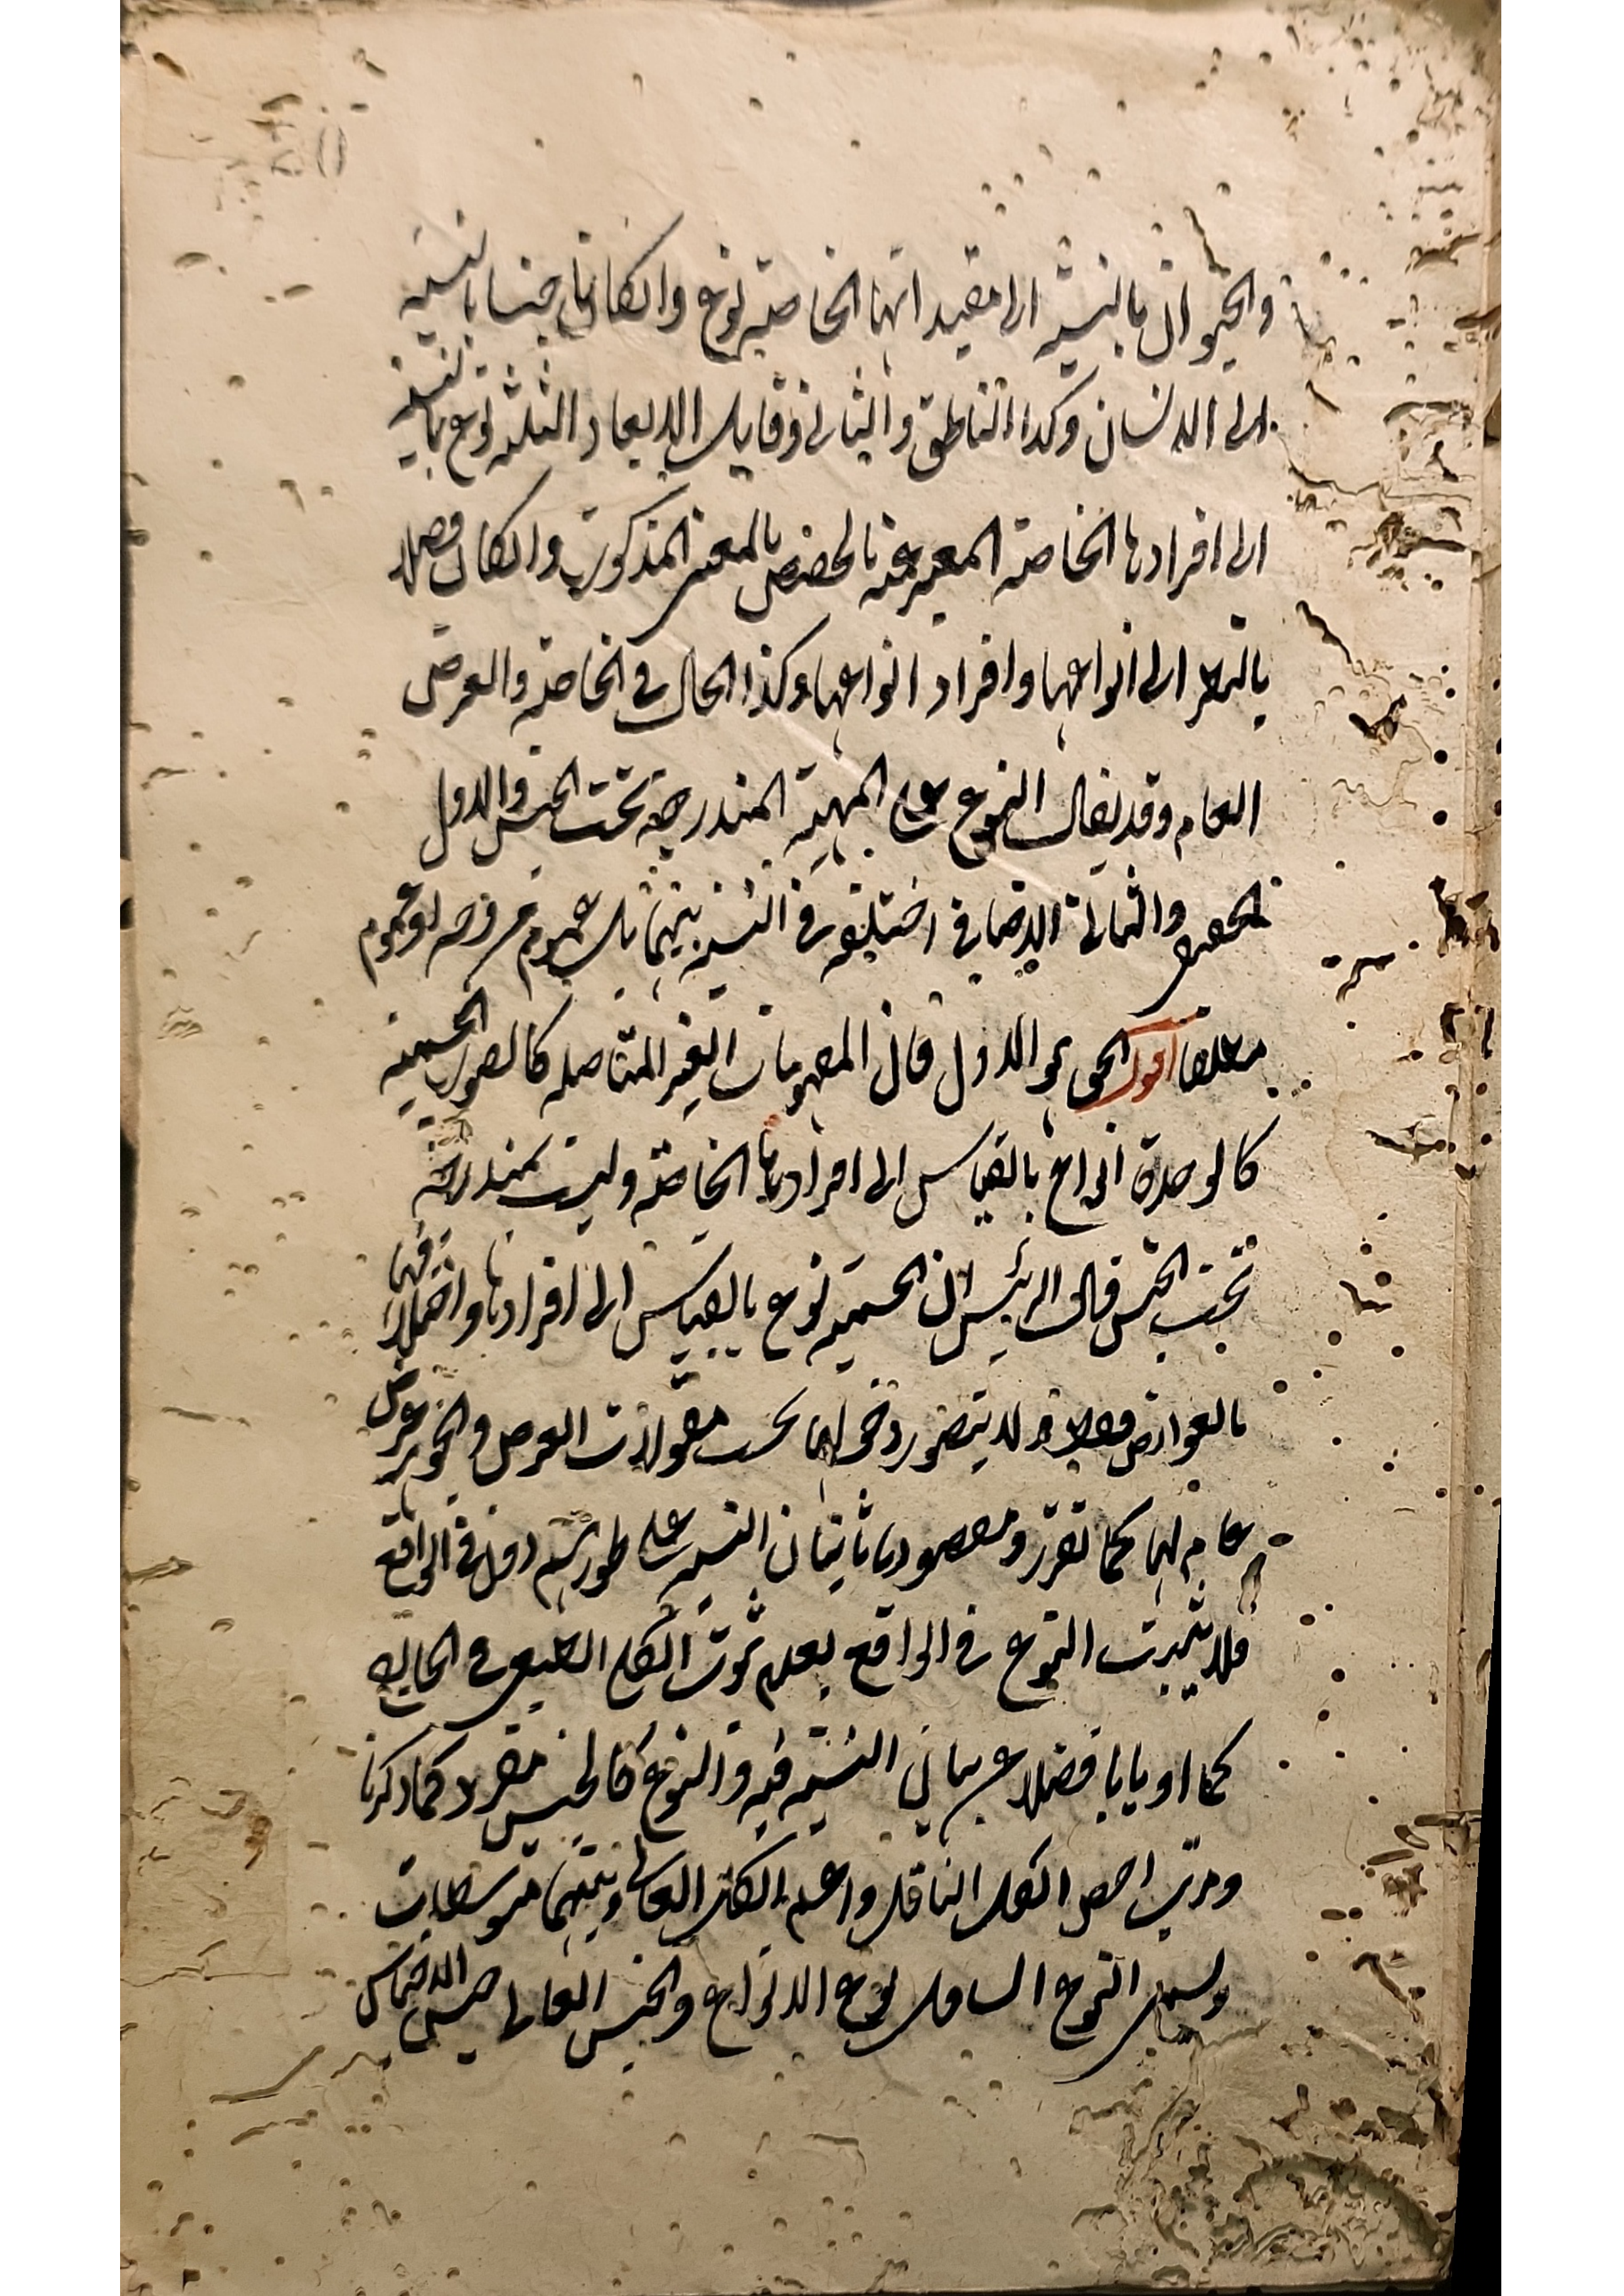 والحيوان بالنسبة الى مقيد اتها الخاصة نوع وانكان جنسا بالنسبة
الى الانسان وكذا الناطق والثانى وقابل الابعاد الثلثة نوع بالنسبة
الى افرادها الخاصة بالمعنى المذكور وانكان فصلا
بالنظر الى انواعها وافراد انواعها وكذا الحال فى الخاصة والعرض
العام وقد يقال النوع على المهية المندرجة تحت الجنس والاول
الحقيقى والثانى الاضافى اختلفوا فى النسبة بينهما بل عموم من وجه او عموم
مطلقا اقول الحق هو الاول فان المفهومات الغير المتاصلة كالصور الجسمية
كالوحدة انواع بالقياس الى افرادها الخاصة وليست بمندرجة
تحت الجنس قال الرئيس ان الجسمية نوع بالقياس الى افرادها واختلافها
بالعوارض لا يتصور دخولها تحت مقولات العرض والجوهر عرض
عام لها كما تقرر ومقصودنا بيان النسبة على طور فى الواقع
فلا يثبت النوع فى الواقع بعدم ثبوت الكلى الطبعى فى الخارج
كما فضلا عن بيان النسبة فيه والنوع كالجنس مفرد كما ذكرنا
ومرتب اخص الكل السافل واعم الكل العالى وبينهما متوسطات
ويسمى النوع السافل نوع الانواع والجنس العالى جنس الاجناس